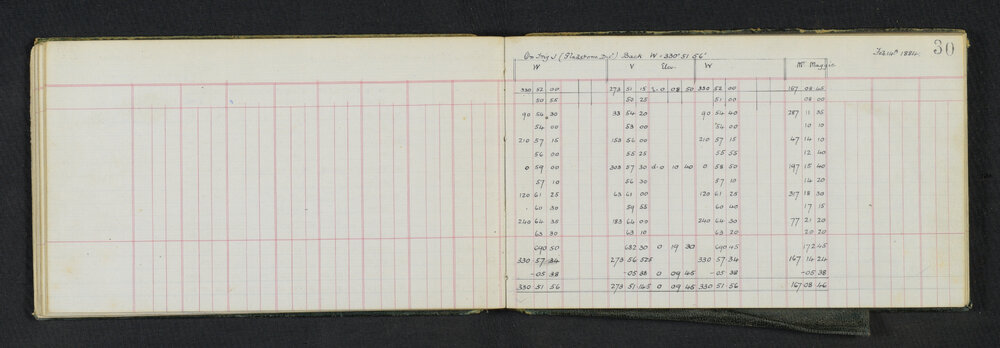 Feb 14th 1884. 30
On Trig J (Gladstone Dist) Back W = 330° 51' 56"
W V Elev. W Mt Maggie
330 52 00 273 51 15 0 08 50 330 52 00 167 08 45
50 55 50 25 51 00 08 00
90 54 30 33 54 20 90 54 40 287 11 35
54 00 53 00 54 00 10 10
210 57 15 153 56 00 210 57 15 47 14 10
56 00 55 25 55 55 12 40
0 59 00 303 57 30 d 0 10 40 0 58 50 197 15 40
57 10 56 30 57 10 14 20
120 61 25 63 61 00 120 61 25 317 18 30
60 30 59 55 60 40 17 15
240 64 35 183 64 00 240 64 30 77 21 20
63 30 63 10 63 20 20 20
690 50 682 30 0 19 30 690 45 172 45
330 57 34 273 56 525 330 57 34 167 14 24
-05 38 -05 38 0 09 45 -05 38 -05 38
330 51 56 273 51 145 0 09 45 330 51 56 167 08 46